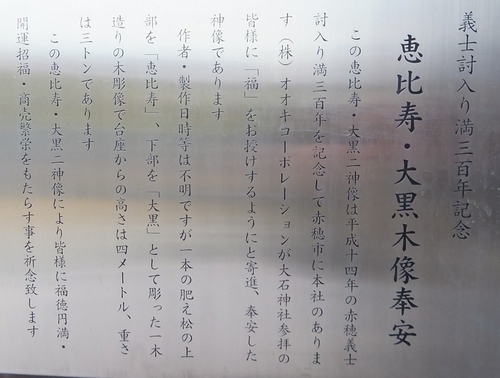 義士討入り満三百年記念
恵比寿・大黒木像奉安
この恵比寿・大黒二神像は平成十四年の赤穂義士
討入り満三百年を記念して赤穂市に本社のありま
す（株）オオキコーポレーションが大石神社参拝の
皆様に「福」をお授けするようにと寄進、奉安した
神像であります
作者・製作日時等は不明ですが一本の肥え松の上
部を「恵比寿」、下部を「大黒」として彫った一木
造りの木彫像で台座からの高さは四メートル、重さ
は三トンであります
この恵比寿・大黒二神像により皆様に福徳円満・
開運招福・商売繁栄をもたらす事を祈念致します